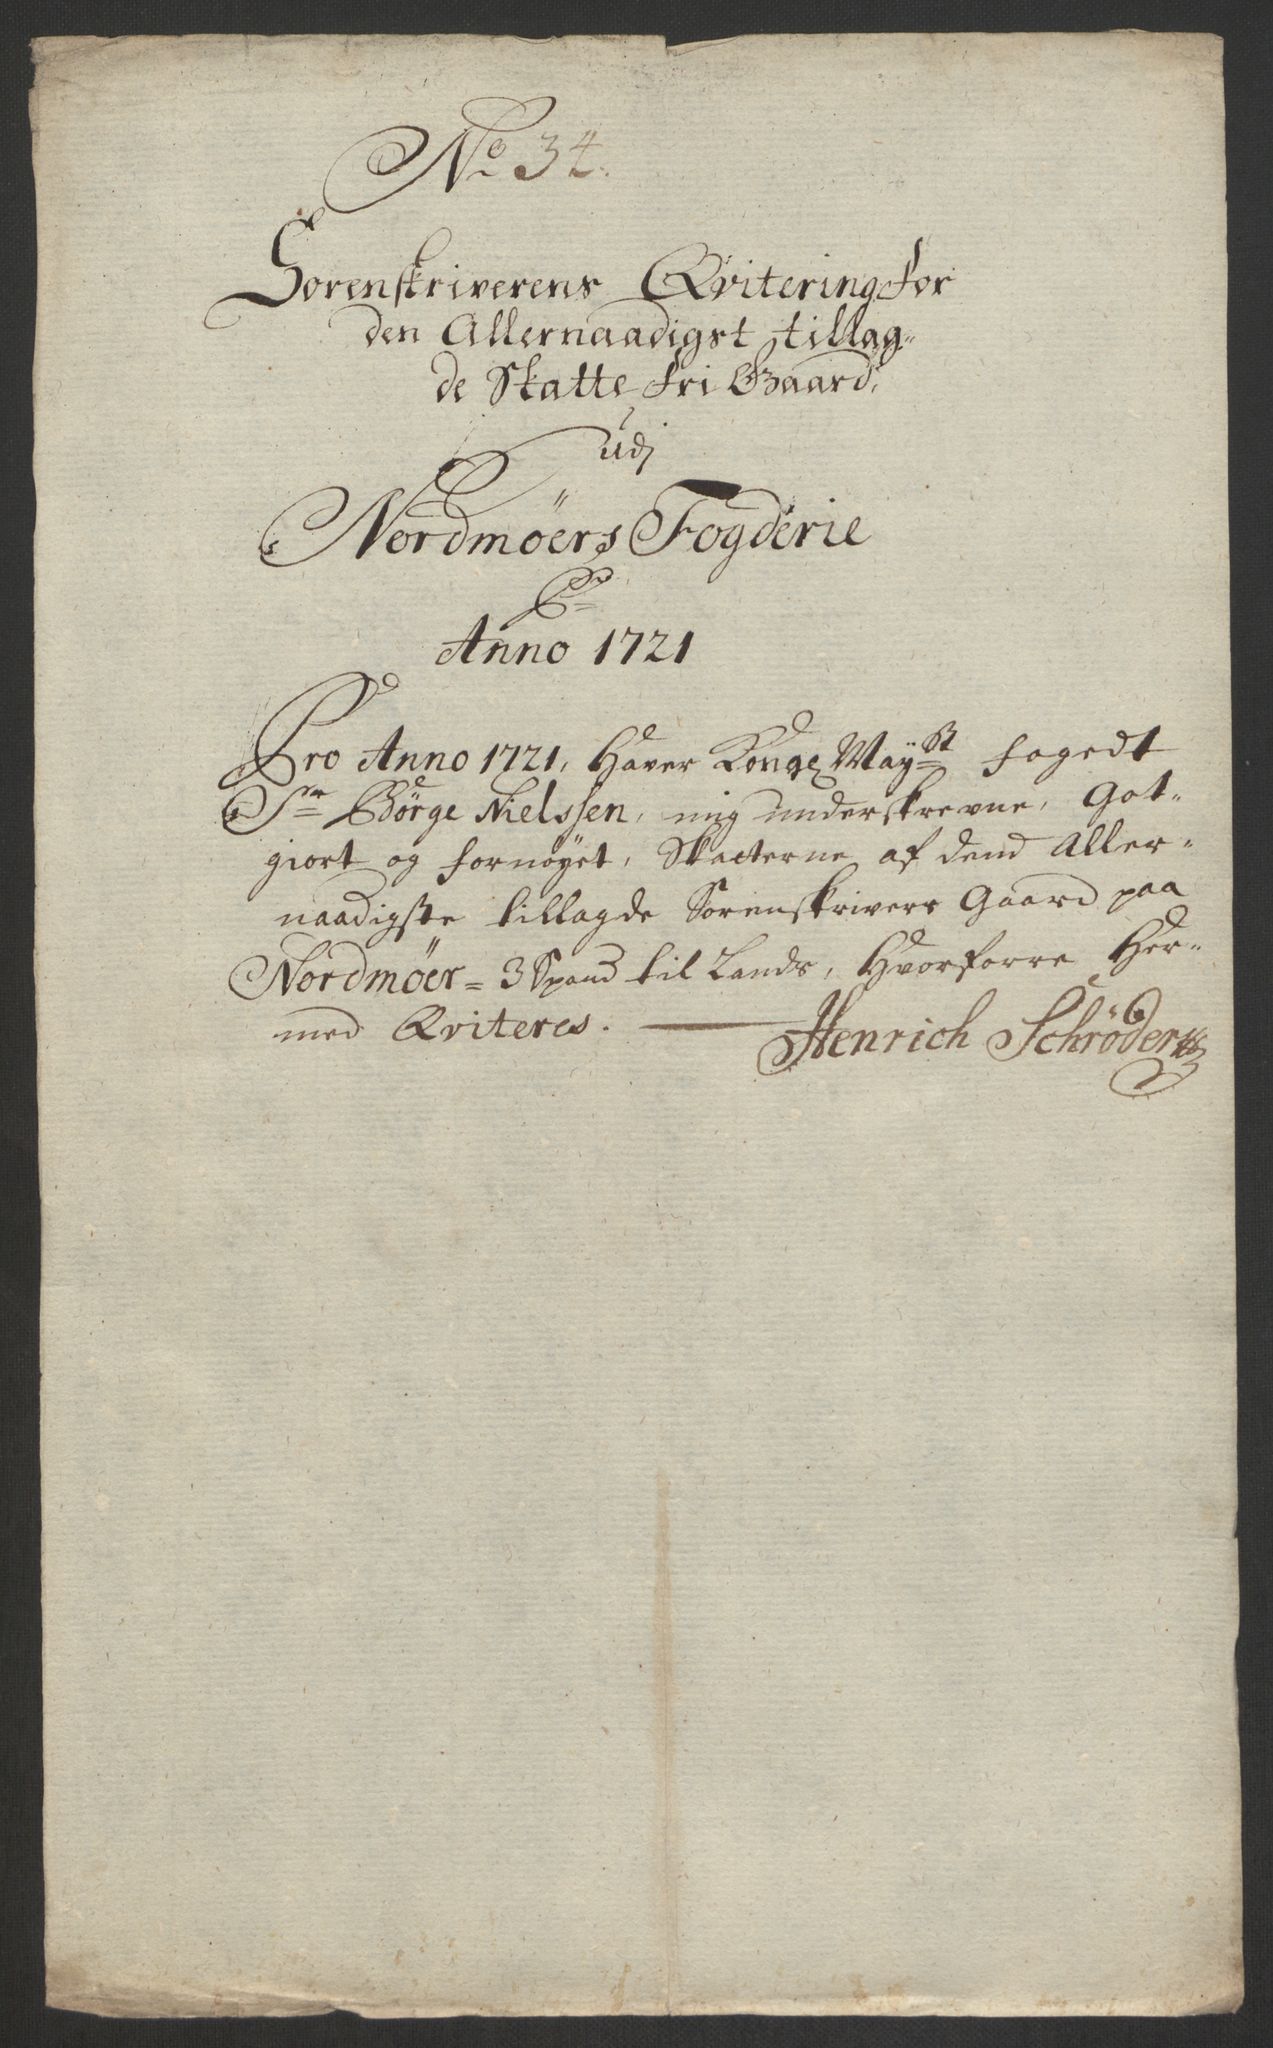 No 34.
Sorenskriverens Qvitering for
den Allernaadigst tillag-
de Skatte fri Gaard,
udj
Nordmöers Fogderie
Pro
Anno 1721
Pro Anno 1721, Haver Kongl Mayst fogedt
Sr Börge Nielssen, mig underskrevne, Got-
giort og fornøyet, Skatterne af dend Aller-
naadigste tillagde Sorenskrivers Gaard paa
Nordmöer = 3 Spand til Lands, Hvorforre Her-
med Qviteres.
Henrich Schröder